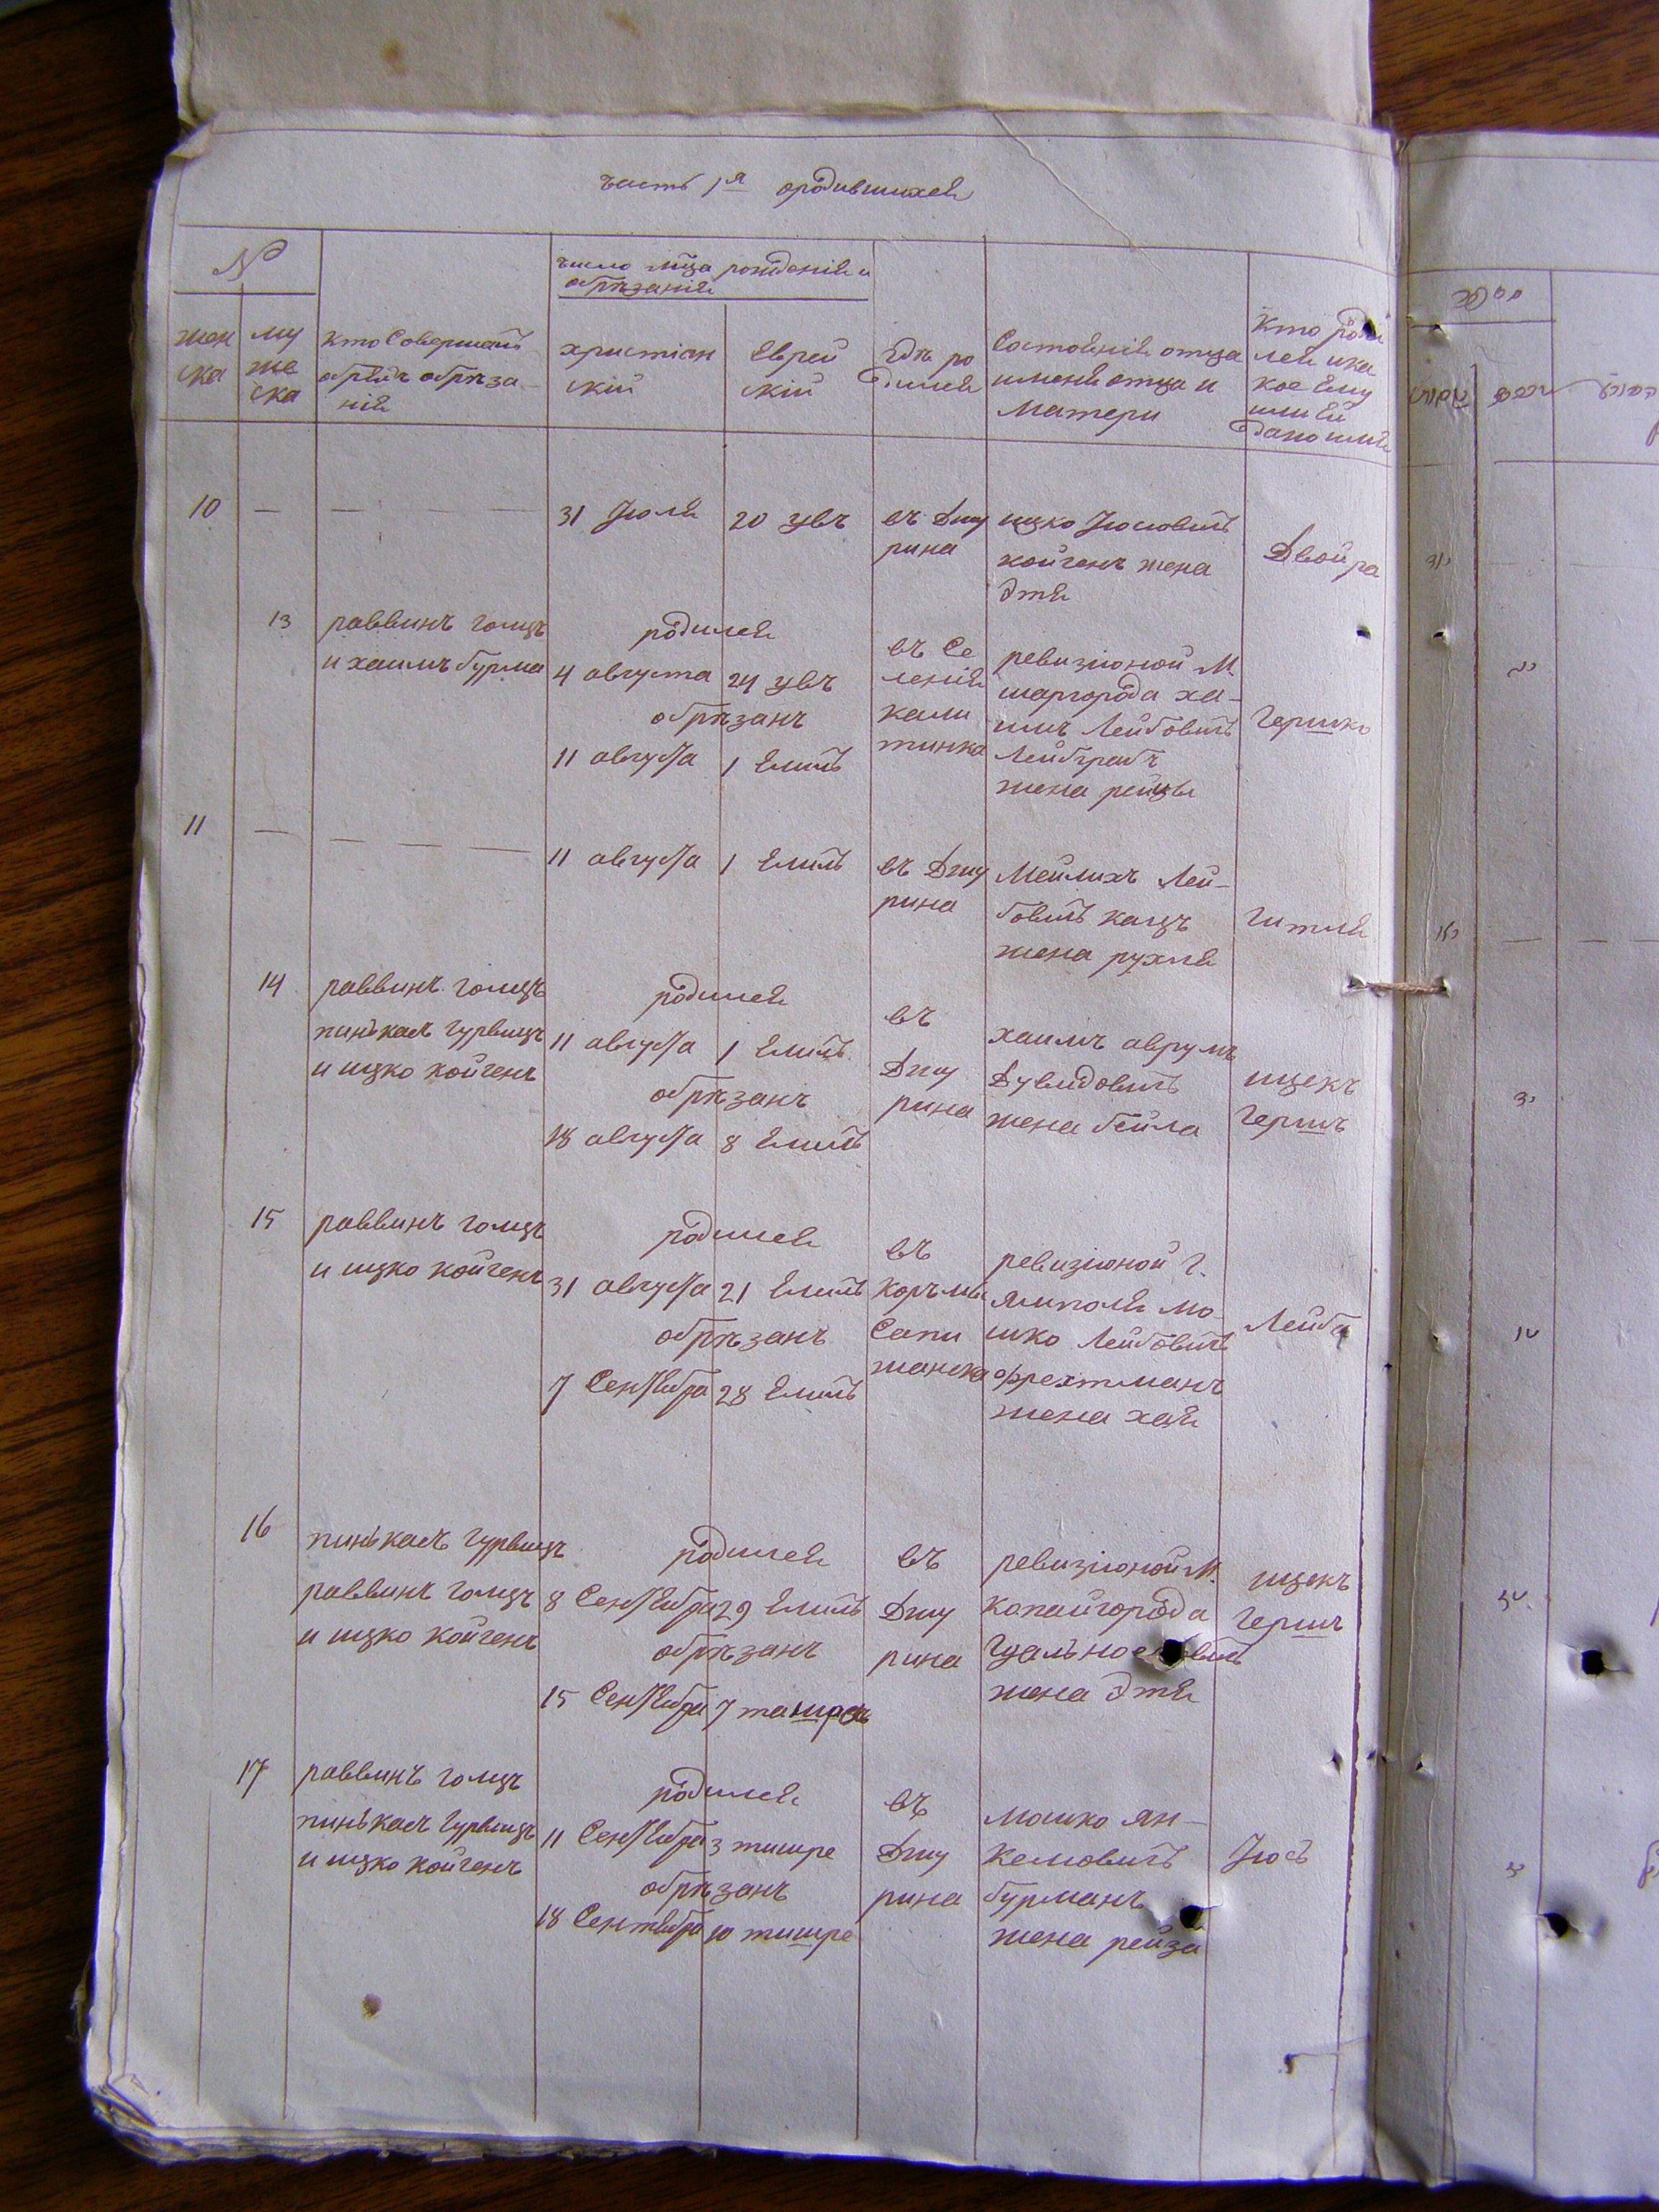 часть 1я ородившихся
№
число мца рожденія и
обрѣзанія
жен
ска
му
же
ска
кто Совершалъ
обрядъ обрѣза-
нія
христіан
скій
Еврей
скій
гдѣ ро
дился
Состояніе отца
имена отца и
матери
Кто роди
лся ика
кое Ему
или Ей
дано имя
10 — — — —
31 Іюля
20 увъ
въ Джу
рина
ицко Іосіовичъ
койгенъ жена
Этя
Двойра
13
раввинъ голцъ
и хаимъ бурма
родился
4 августа
24 увъ
обрѣзанъ
11 августа
1 Елилъ
въ Се
леніи
кали
тинка
ревизіоной М.
шаргорода ха-
имъ Лейбовичъ
жена рейзы
Гершко
11 — — — —
11 августа
1 Елилъ
въ Джу
рина
Мейлихъ Лей-
бовичъ кацъ
жена рухля
Гитля
14
раввинъ голцъ
пинькасъ гурвицъ
и ицко койгенъ
родился
11 августа
1 Елилъ
обрѣзанъ
18 августа
8 Елилъ
въ
Джу
рина
хаимъ аврумъ
Дувидовичъ
жена бейла
ицекъ
Гершъ
15
раввинъ голцъ
и ицко койгенъ
родился
31 августа
21 Елилъ
обрѣзанъ
7 Сентября
28 Елилъ
въ
Корчмы
Сапи
жанска
ревизіоной г.
ямполя мо-
шко Лейбовичъ
фрехтманъ
жена хая
Лейба
16
пинькасъ гурвицъ
раввинъ голцъ
и ицко койгенъ
родился
8 Сентября
29 Елилъ
обрѣзанъ
15 Сентября
7
въ
Джу
рина
ревизіоной М.
копайгорода
жена Этя
ицекъ
Гершъ
17
раввинъ голцъ
пинькасъ гурвицъ
и ицко койгенъ
родился
11 Сентября
3 тишре
обрѣзанъ
18 Сентября
10 тишре
въ
Джу
рина
мошко ян-
келіовичъ
бурманъ
жена рейза
Іосъ